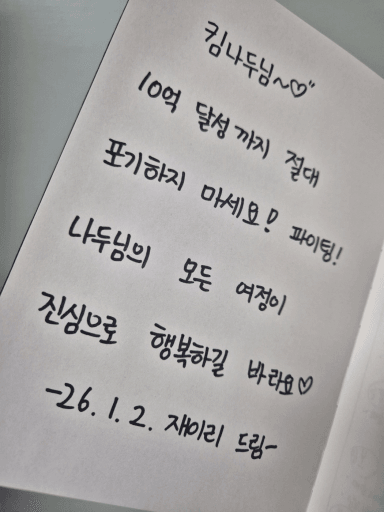 킴나두님~♡"
10억 달성까지 절대
포기하지 마세요! 파이팅!
나두님의 모든 여정이
진심으로 행복하길 바라요♡
-26. 1. 2. 재이리 드림-